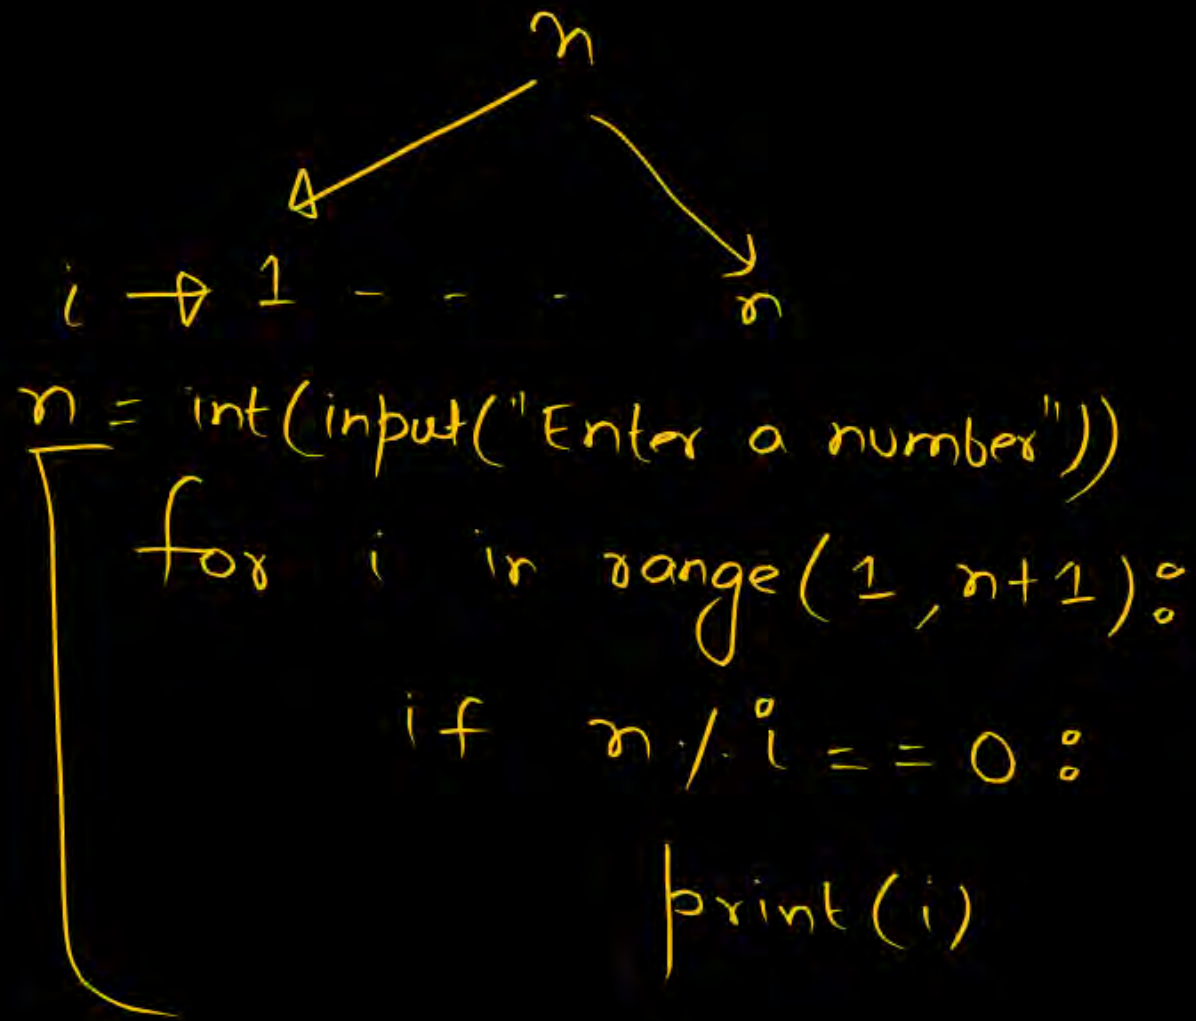 n
i → 1 - - - n
n = int(input("Enter a number"))
for i in range(1, n+1):
if n % i == 0:
print(i)